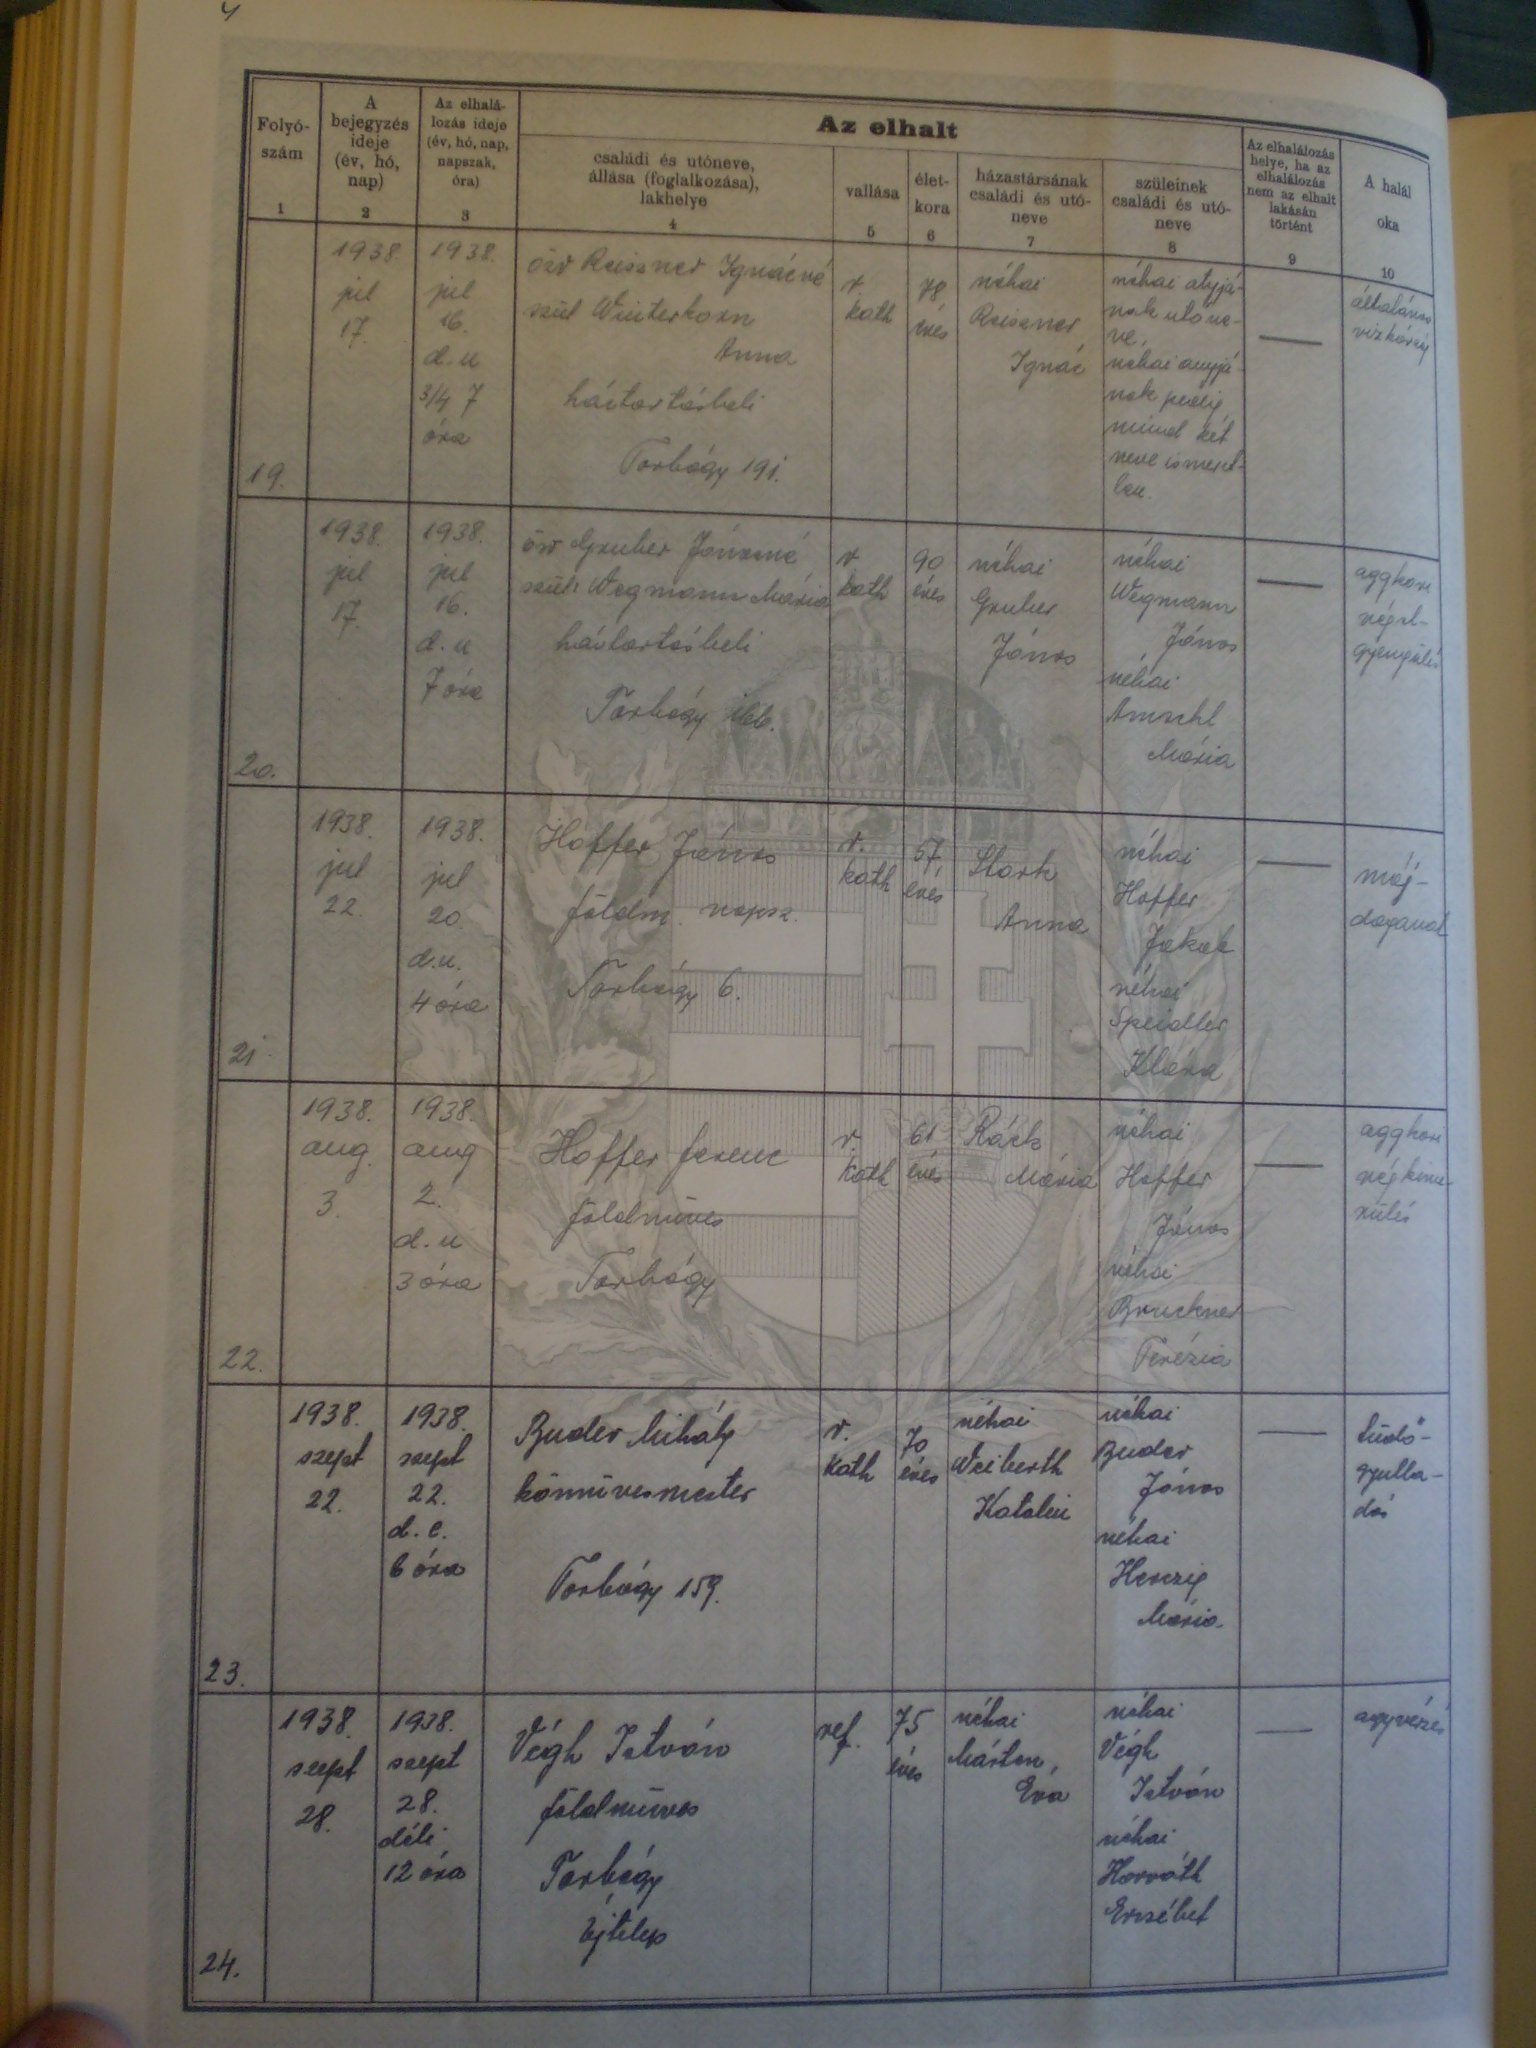 4
Folyó-
szám
1
A
bejegyzés
ideje
(év, hó,
nap)
2
Az elhalá-
lozás ideje
(év, hó, nap,
napszak,
óra)
3
Az elhalt
családi és utóneve,
állása (foglalkozása),
lakhelye
4
vallása
5
élet-
kora
6
házastársának
családi és utó-
neve
7
szüleinek
családi és utó-
neve
8
Az elhalálozás
helye, ha az
elhalálozás
nem az elhalt
lakásán
történt
9
A halál
oka
10
19.
1938.
jul
17.
1938.
jul
16.
d. u
3/4 7
óra
özv Reiszner Ignácné
szül Winterkorn
Anna
háztartásbeli
Torbágy 191.
r.
kath
78
éves
néhai
Reiszner
Ignác
néhai atyjá-
nak utóne-
ve,
néhai anyjá-
nak pedig
mind két
neve ismeret-
len.
általános
vizkórság
20.
1938.
jul
17.
1938.
jul
16.
d. u
7 óra
özv Gruber Jánosné
szül: Wegmann Mária
háztartásbeli
Torbágy
r
kath
90
éves
néhai
Gruber
János
néhai
Wegmann
János
néhai
Amschl
Mária
aggkori
végel-
gyengülés
21.
1938.
jul
22.
1938.
jul
20.
d. u.
4 óra
Hoffer János
földm. napsz.
Torbágy 6.
r.
kath
57.
éves
Stark
Anna
néhai
Hoffer
Jakab
néhai
Speidller
Klára
máj-
daganat
22.
1938.
aug.
3.
1938.
aug
2.
d. u
3 óra
Hoffer Ferenc
földmüves
Torbágy
r.
kath
61
éves
Rácz
Mária
néhai
Hoffer
János
néhai
Bruckner
Terézia
aggkori
végkime-
rülés
23.
1938.
szept
22.
1938.
szept
22.
d. e.
6 óra
Buder Mihály
kőmüvesmester
Torbágy 159.
r.
kath
70
éves
néhai
Weiberth
Katalin
néhai
Buder
János
néhai
Herczig
Mária.
tüdő-
gyulla-
dás
24.
1938.
szept
28.
1938.
szept
28.
déli
12 óra
Végh István
földmüves
Torbágy
Ujtelep
ref.
75
éves
néhai
Márton
Éva
néhai
Végh
István
néhai
Horváth
Erzsébet
agyvérzés